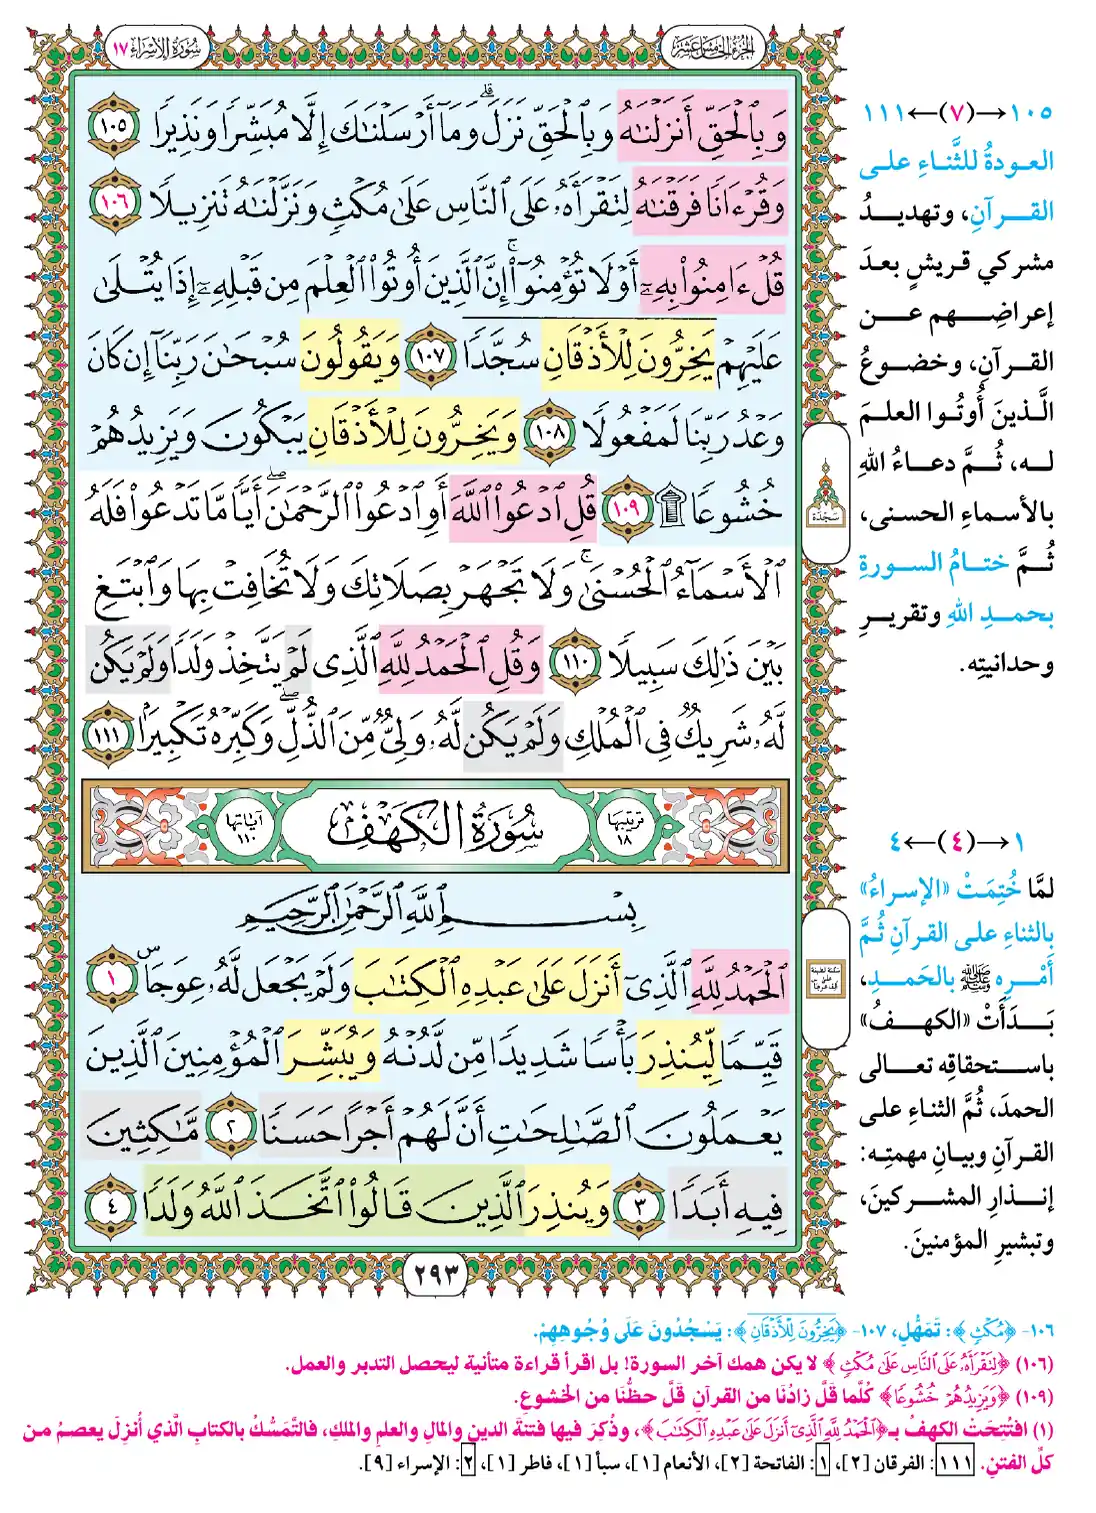 الجزء الخامس عشر
سورة الإسراء ١٧
وَبِٱلْحَقِّ أَنزَلْنَٰهُ وَبِٱلْحَقِّ نَزَلَ ۗ وَمَآ أَرْسَلْنَٰكَ إِلَّا مُبَشِّرًا وَنَذِيرًا ١٠٥
وَقُرْءَانًا فَرَقْنَٰهُ لِتَقْرَأَهُۥ عَلَى ٱلنَّاسِ عَلَىٰ مُكْثٍ وَنَزَّلْنَٰهُ تَنزِيلًا ١٠٦
قُلْ ءَامِنُوا۟ بِهِۦٓ أَوْ لَا تُؤْمِنُوٓا۟ ۚ إِنَّ ٱلَّذِينَ أُوتُوا۟ ٱلْعِلْمَ مِن قَبْلِهِۦٓ إِذَا يُتْلَىٰ
عَلَيْهِمْ يَخِرُّونَ لِلْأَذْقَانِ سُجَّدًا ١٠٧ وَيَقُولُونَ سُبْحَٰنَ رَبِّنَآ إِن كَانَ
وَعْدُ رَبِّنَا لَمَفْعُولًا ١٠٨ وَيَخِرُّونَ لِلْأَذْقَانِ يَبْكُونَ وَيَزِيدُهُمْ
خُشُوعًا ۩ ١٠٩ قُلِ ٱدْعُوا۟ ٱللَّهَ أَوِ ٱدْعُوا۟ ٱلرَّحْمَٰنَ ۖ أَيًّا مَّا تَدْعُوا۟ فَلَهُ
ٱلْأَسْمَآءُ ٱلْحُسْنَىٰ ۚ وَلَا تَجْهَرْ بِصَلَاتِكَ وَلَا تُخَافِتْ بِهَا وَٱبْتَغِ
بَيْنَ ذَٰلِكَ سَبِيلًا ١١٠ وَقُلِ ٱلْحَمْدُ لِلَّهِ ٱلَّذِى لَمْ يَتَّخِذْ وَلَدًا وَلَمْ يَكُن
لَّهُۥ شَرِيكٌ فِى ٱلْمُلْكِ وَلَمْ يَكُن لَّهُۥ وَلِىٌّ مِّنَ ٱلذُّلِّ ۖ وَكَبِّرْهُ تَكْبِيرًۢا ١١١
ترتيبها ١٨ سُورَةُ الكَهْفِ آياتها ١١٠
بِسْمِ ٱللَّهِ ٱلرَّحْمَٰنِ ٱلرَّحِيمِ
ٱلْحَمْدُ لِلَّهِ ٱلَّذِىٓ أَنزَلَ عَلَىٰ عَبْدِهِ ٱلْكِتَٰبَ وَلَمْ يَجْعَل لَّهُۥ عِوَجَا ۜ ١
قَيِّمًا لِّيُنذِرَ بَأْسًا شَدِيدًا مِّن لَّدُنْهُ وَيُبَشِّرَ ٱلْمُؤْمِنِينَ ٱلَّذِينَ
يَعْمَلُونَ ٱلصَّٰلِحَٰتِ أَنَّ لَهُمْ أَجْرًا حَسَنًا ٢ مَّٰكِثِينَ
فِيهِ أَبَدًا ٣ وَيُنذِرَ ٱلَّذِينَ قَالُوا۟ ٱتَّخَذَ ٱللَّهُ وَلَدًا ٤
٢٩٣
سَجْدَة
سكتة لطيفة
على
١٠٥→(٧)←١١١
العودةُ للثَّناءِ على
القرآنِ، وتهديدُ
مشركي قريشٍ بعدَ
إعراضِهم عن
القرآنِ، وخضوعُ
الَّذينَ أُوتُوا العلمَ
له، ثُمَّ دعاءُ اللهِ
بالأسماءِ الحسنى،
ثُمَّ ختامُ السورةِ
بحمدِ اللهِ وتقريرِ
وحدانيتِه.
١→(٤)←٤
لمَّا خُتِمَتْ «الإسراءُ»
بالثناءِ على القرآنِ ثُمَّ
أَمْرِه ﷺ بالحَمدِ،
بَدَأَتْ «الكهفُ»
باستحقاقِه تعالى
الحمدَ، ثُمَّ الثناءِ على
القرآنِ وبيانِ مهمتِه:
إنذارِ المشركينَ،
وتبشيرِ المؤمنينَ.
١٠٦- ﴿مُكْثٍ﴾: تَمَهُّلٍ، ١٠٧- ﴿يَخِرُّونَ لِلْأَذْقَانِ﴾: يَسْجُدُونَ عَلَى وُجُوهِهِمْ.
(١٠٦) ﴿لِتَقْرَأَهُۥ عَلَى ٱلنَّاسِ عَلَىٰ مُكْثٍ﴾ لا يكن همك آخر السورة! بل اقرأ قراءة متأنية ليحصل التدبر والعمل.
(١٠٩) ﴿وَيَزِيدُهُمْ خُشُوعًا﴾ كُلَّما قَلَّ زادُنَا من القرآنِ قَلَّ حظُّنَا من الخشوعِ.
(١) افتُتِحَتْ الكهفُ بـ﴿ٱلْحَمْدُ لِلَّهِ ٱلَّذِىٓ أَنزَلَ عَلَىٰ عَبْدِهِ ٱلْكِتَٰبَ﴾، وذُكِرَ فيها فتنةَ الدينِ والمالِ والعلمِ والملكِ، فالتَّمَسُّكُ بالكتابِ الَّذي أُنزِلَ يعصمُ من
كلِّ الفتنِ. ١١١: الفرقان [٢]، ١: الفاتحة [٢]، الأنعام [١]، سبأ [١]، فاطر [١]، ٢: الإسراء [٩].